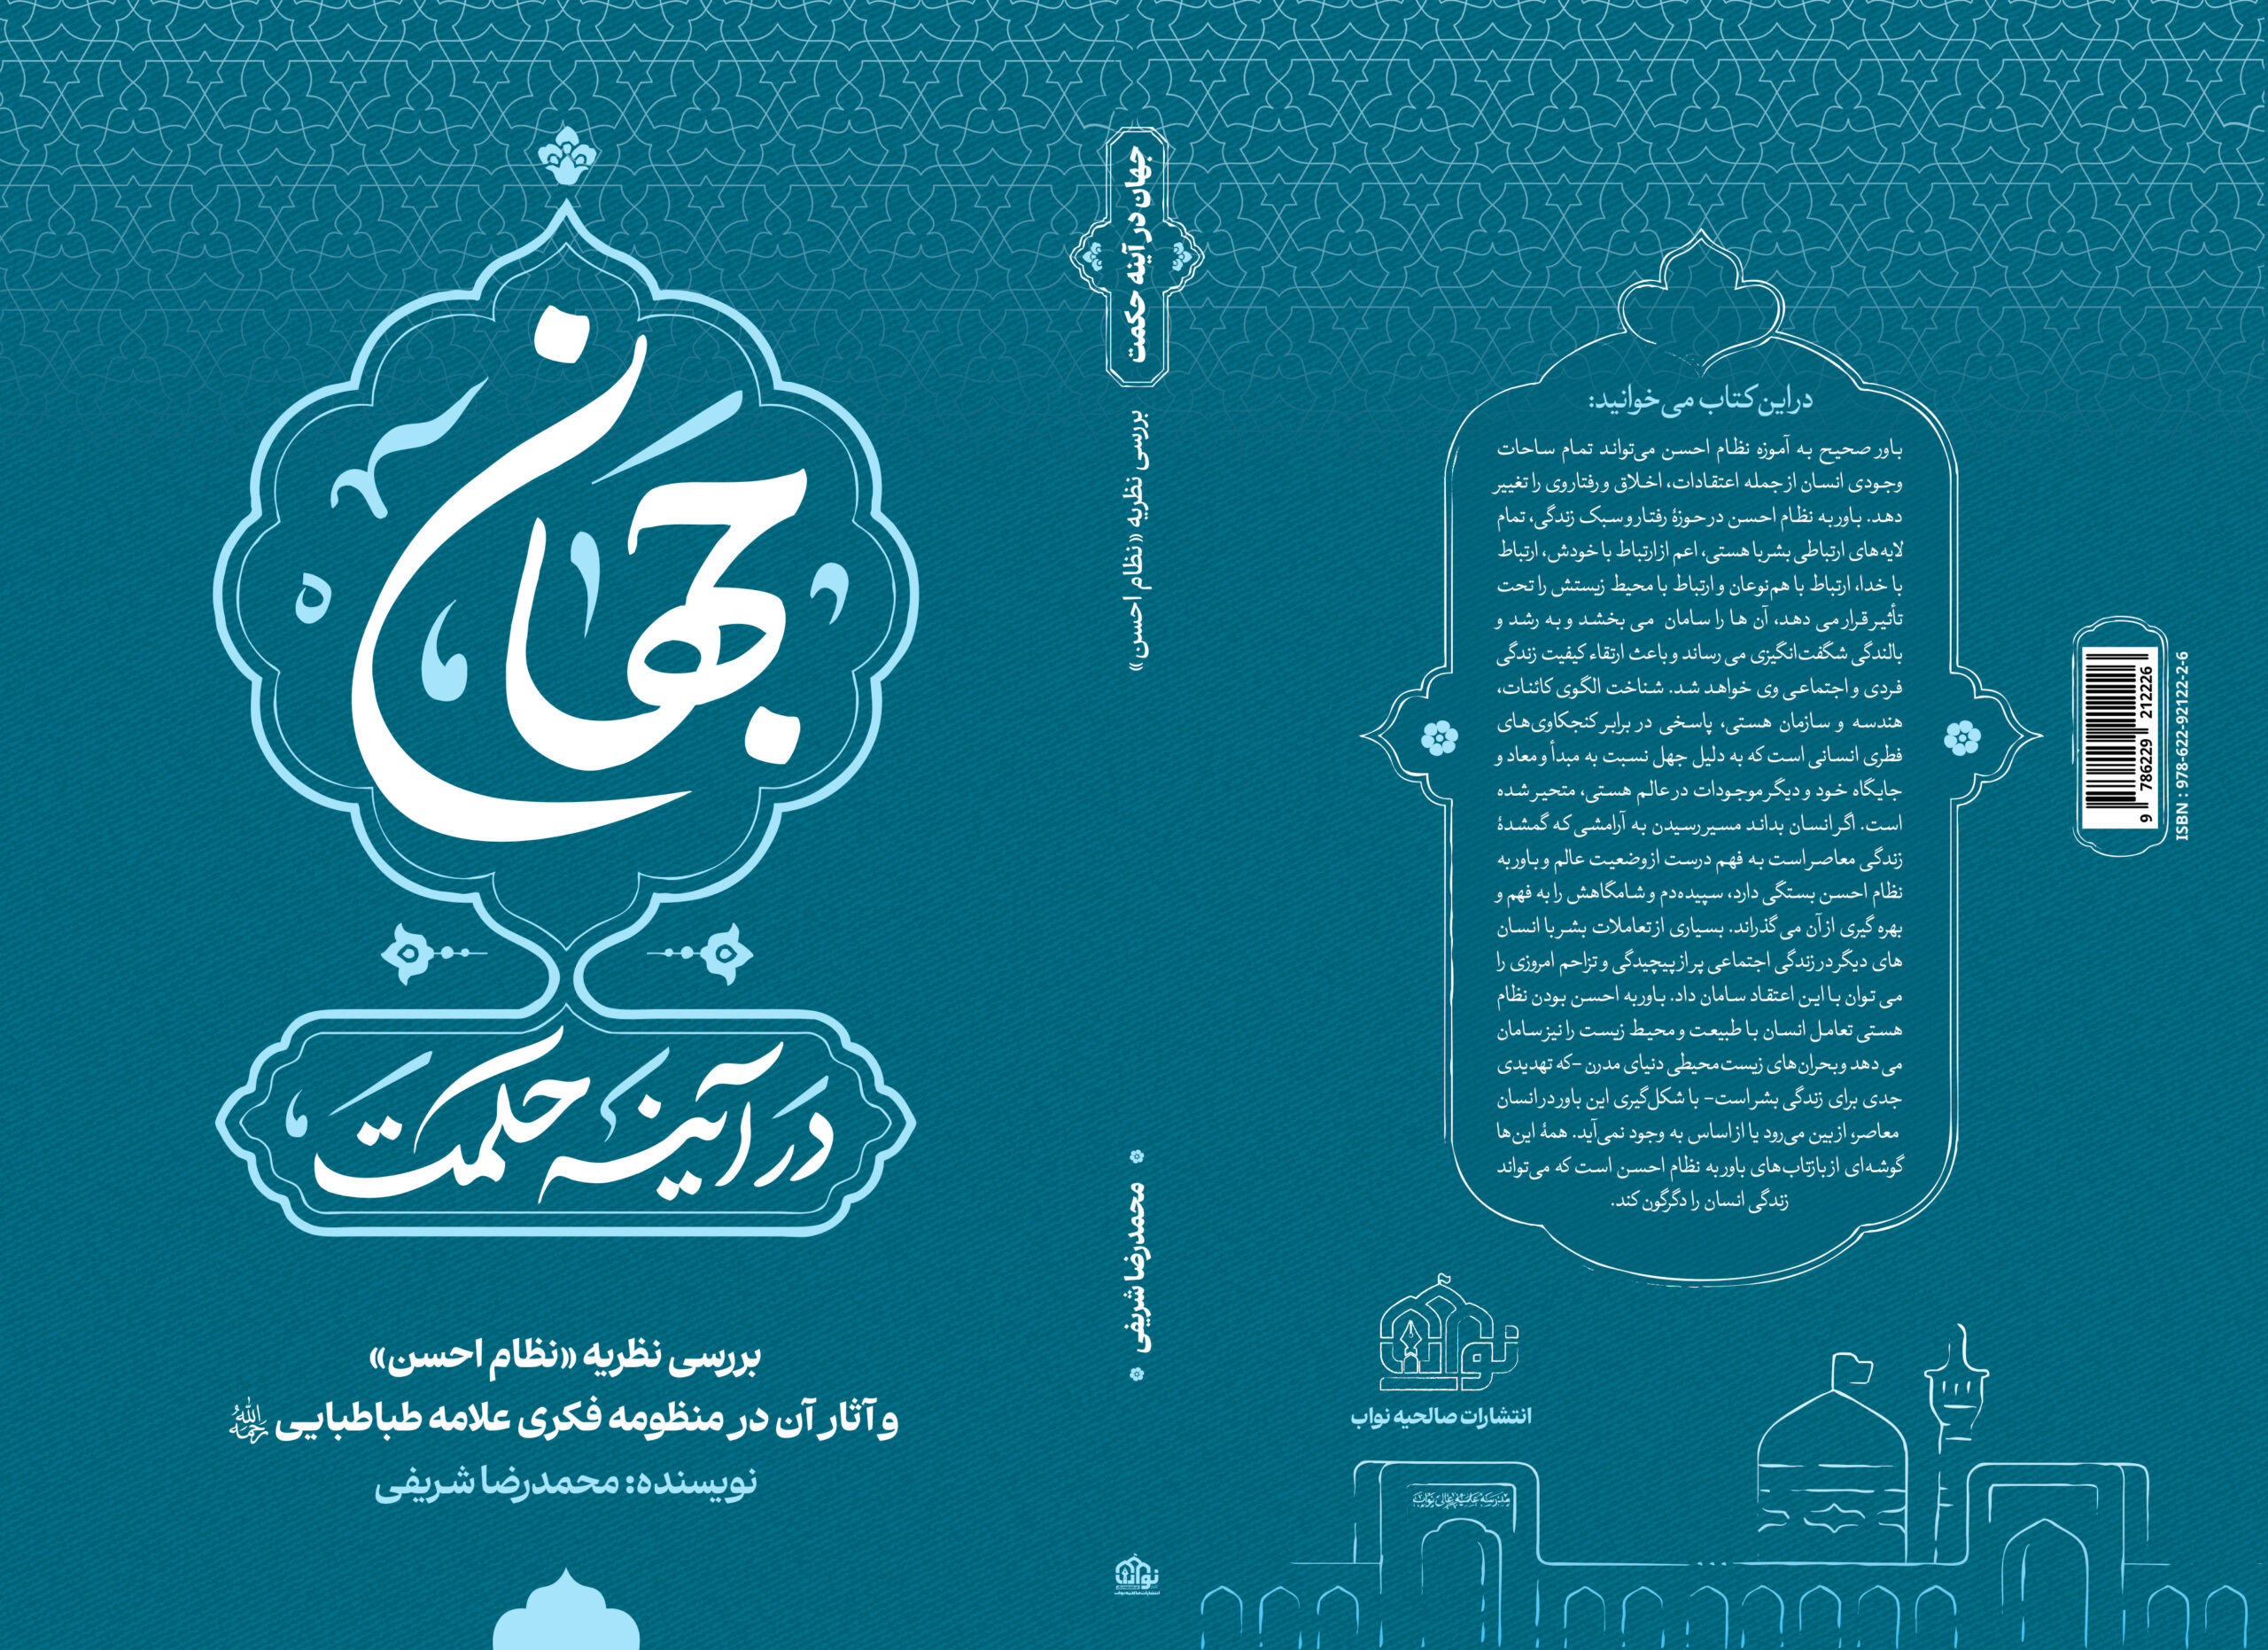 جهان
در آینه حکمت
بررسی نظریه «نظام احسن»
و آثار آن در منظومه فکری علامه طباطبایی رحمه‌الله
نویسنده: محمدرضا شریفی
جهان در آینه حکمت
بررسی نظریه «نظام احسن»
محمدرضا شریفی
نواب
انتشارات صالحیه نواب
در این کتاب می‌خوانید:
باور صحیح به آموزه نظام احسن می‌تواند تمام ساحات
وجودی انسان از جمله اعتقادات، اخلاق و رفتار وی را تغییر
دهد. باور به نظام احسن در حوزهٔ رفتار و سبک زندگی، تمام
لایه‌های ارتباطی بشر با هستی، اعم از ارتباط با خودش، ارتباط
با خدا، ارتباط با هم‌نوعان و ارتباط با محیط زیستش را تحت
تأثیر قرار می دهد، آن ها را سامان می بخشد و به رشد و
بالندگی شگفت‌انگیزی می رساند و باعث ارتقاء کیفیت زندگی
فردی و اجتماعی وی خواهد شد. شناخت الگوی کائنات،
هندسه و سازمان هستی، پاسخی در برابر کنجکاوی‌های
فطری انسانی است که به دلیل جهل نسبت به مبدأ و معاد و
جایگاه خود و دیگر موجودات در عالم هستی، متحیر شده
است. اگر انسان بداند مسیر رسیدن به آرامشی که گمشدهٔ
زندگی معاصر است به فهم درست از وضعیت عالم و باور به
نظام احسن بستگی دارد، سپیده‌دم و شامگاهش را به فهم و
بهره گیری از آن می گذراند. بسیاری از تعاملات بشر با انسان
های دیگر در زندگی اجتماعی پر از پیچیدگی و تزاحم امروزی را
می توان با این اعتقاد سامان داد. باور به احسن بودن نظام
هستی تعامل انسان با طبیعت و محیط زیست را نیز سامان
می دهد و بحران‌های زیست‌محیطی دنیای مدرن -که تهدیدی
جدی برای زندگی بشر است- با شکل‌گیری این باور در انسان
معاصر، از بین می‌رود یا از اساس به وجود نمی‌آید. همهٔ این‌ها
گوشه‌ای از بازتاب‌های باور به نظام احسن است که می‌تواند
زندگی انسان را دگرگون کند.
نواب
انتشارات صالحیه نواب
مدرسه علمیه عالی نواب
9 786229 212226
ISBN : 978-622-92122-2-6